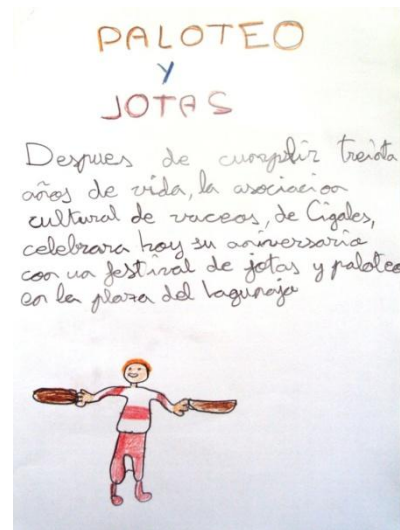 PALOTEO
Y
JOTAS
Despues de cumplir treinta
años de vida, la asociacion
cultural de vaceos, de Cigales,
celebrara hoy su aniversario
con un festival de jotas y paloteo
en la plaza del lagunajo